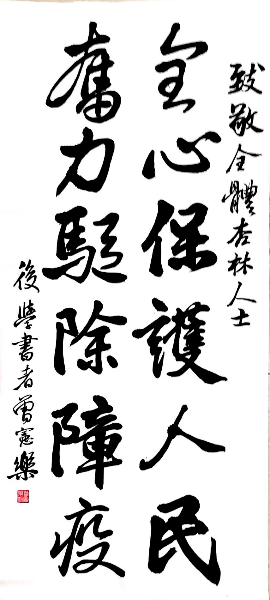 致敬全體杏林人士
全心保護人民
奮力驅除障疫
後學書者曾憲樂